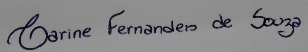 Carine Fernandes de Souza